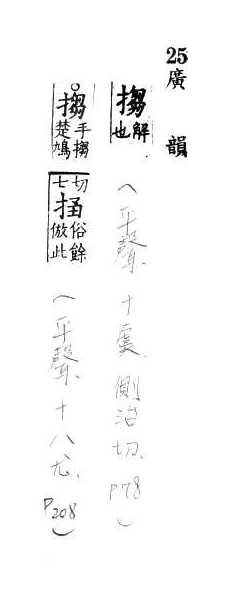 25 廣韻
搊 解也 (平聲、十虞、側治切、P78)
○搊 手搊楚鳩切七 俗餘倣此 (平聲、十八尤、P208)